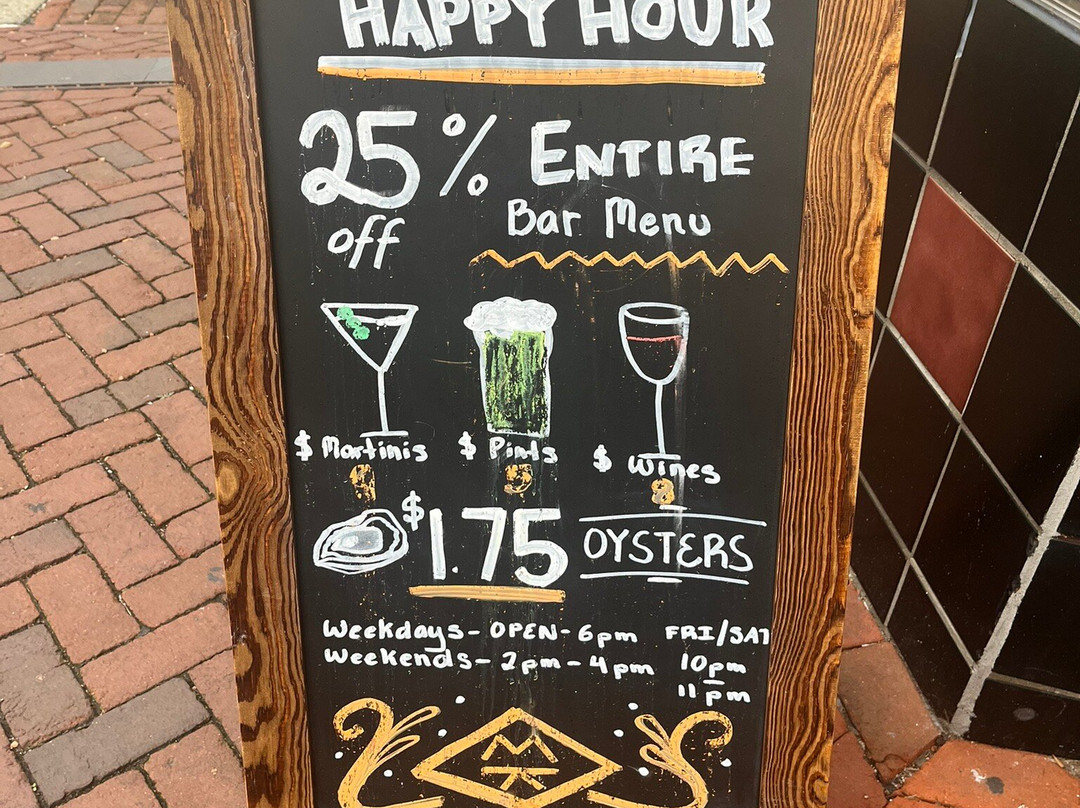 HAPPY HOUR
25% ENTIRE
off Bar Menu
$ Martinis $ Pints $ Wines
9 5 8
$1.75 OYSTERS
Weekdays - OPEN - 6pm FRI/SAT
Weekends - 2pm - 4pm 10pm
11pm
MK